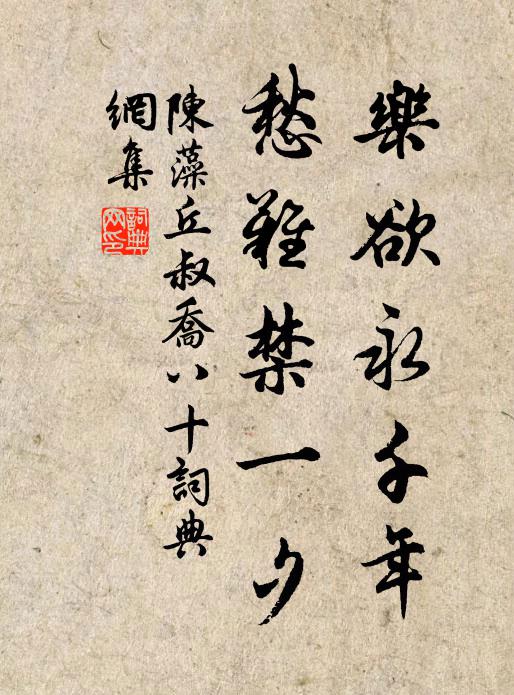 樂欲永千年
愁難禁一夕
陳藻丘叔喬八十詞典
網集
詞典
网印